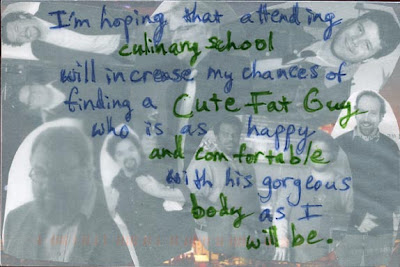 I'm hoping that attending
culinary school
will increase my chances of
finding a Cute Fat Guy
who is as happy
and comfortable
with his gorgeous
body as I
will be.